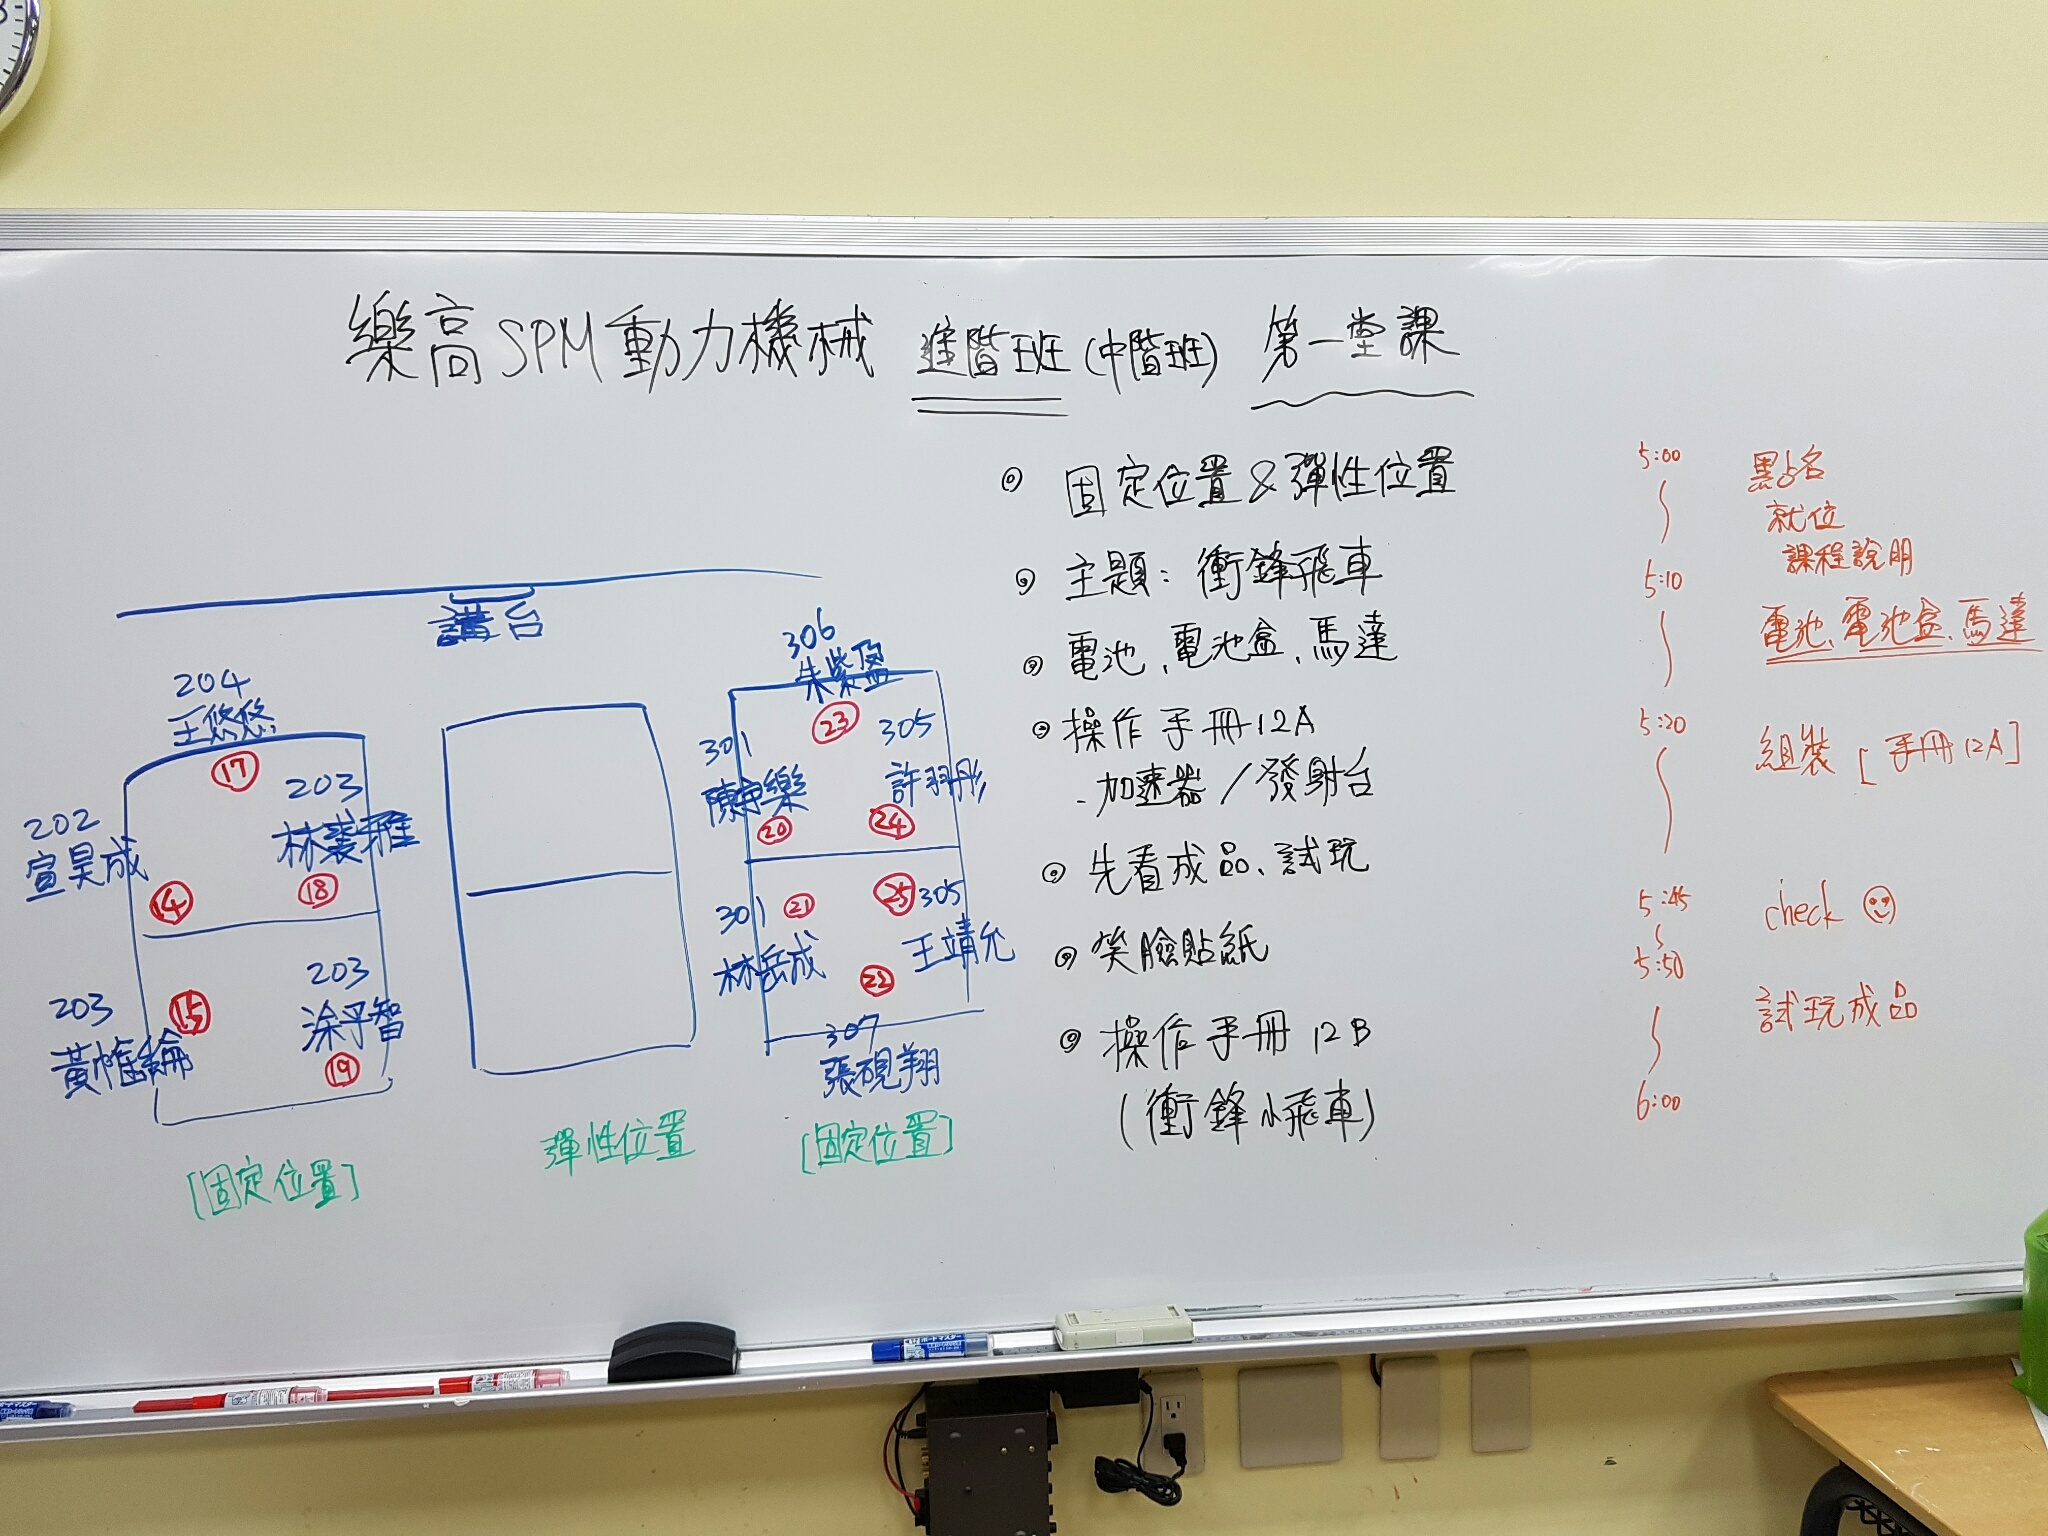 樂高SPM動力機械 進階班(中階班) 第一堂課
講台
204
王悠悠
17
203
18
202
宣昊成
14
203
15
203
涂予智
19
[固定位置]
彈性位置
306
朱紫盈
23
301
20
305
許羽彤
24
301
21
林岳成
25
305
王靖允
22
307
張硯翔
[固定位置]
固定位置&彈性位置
主題:衝鋒飛車
電池、電池盒、馬達
操作手冊12A
加速器/發射台
先看成品、試玩
笑臉貼紙
操作手冊12B
(衝鋒小飛車)
5:00
點名
就位
課程說明
5:10
電池、電池盒、馬達
5:20
組裝[手冊12A]
5:45
check
5:50
試玩成品
6:00